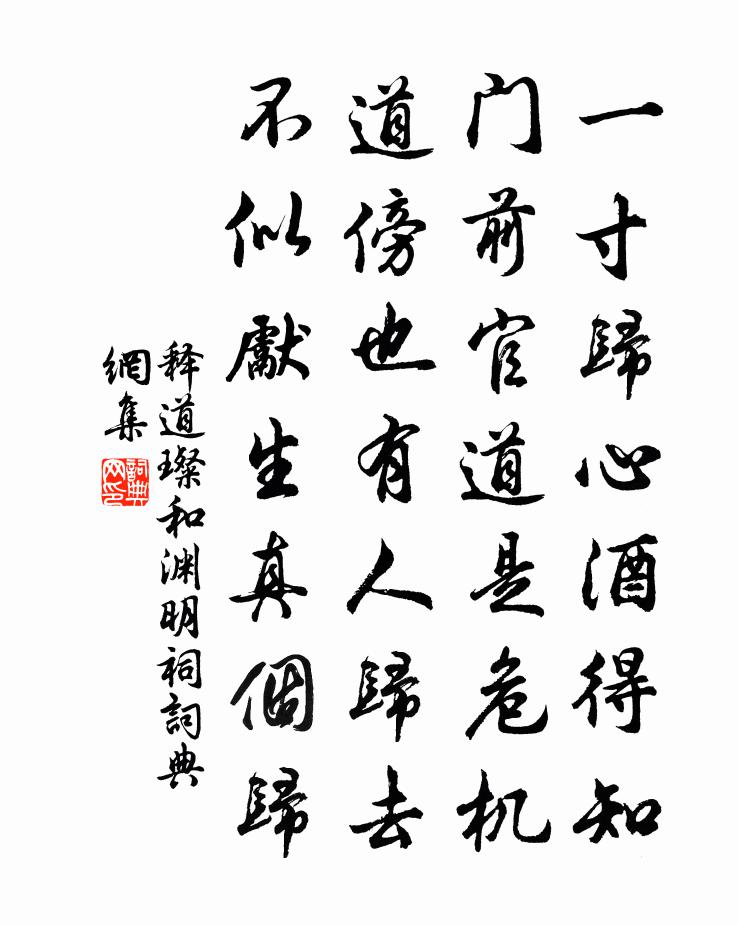 一寸歸心酒得知
門前官道是危机
道傍也有人歸去
不似獻生真個歸
释道璨和渊明祠詞典
網集
詞典網印